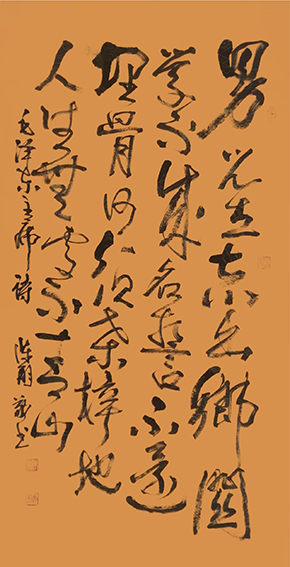 男兒立志出鄉關
學不成名誓不還
埋骨何須桑梓地
人生無處不青山
毛泽东主席詩